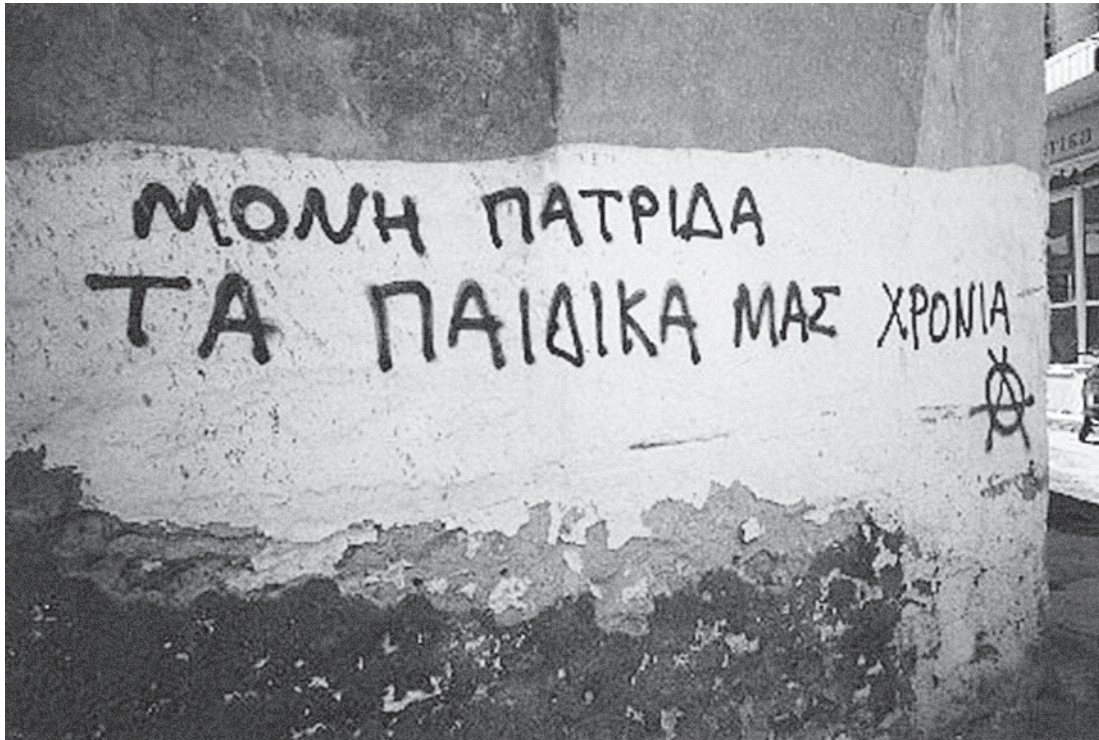 ΜΟΝΗ ΠΑΤΡΙΔΑ
ΤΑ ΠΑΙΔΙΚΑ ΜΑΣ ΧΡΟΝΙΑ
Α